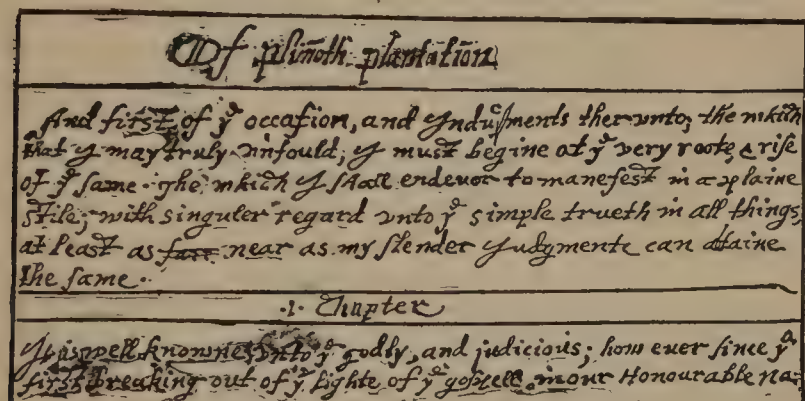 Of plim̄oth plantation
And first of yᵉ occasion, and Jndusments ther vnto; the which
that J may truly vnfould, J must begine at yᵉ very roote, & rise
of yᵉ same. The which J shall endevor to manefest in a plaine
stile; with singuler regard vnto yᵉ simple trueth in all things,
at least as farr near as my slender Judgmente can attaine
the same.
.1. Chapter
Jt is well knowne vnto yᵉ godly, and judicious; how euer since yᵉ
first breaking out of yᵉ lighte of yᵉ gospell, in our Honourable Na-